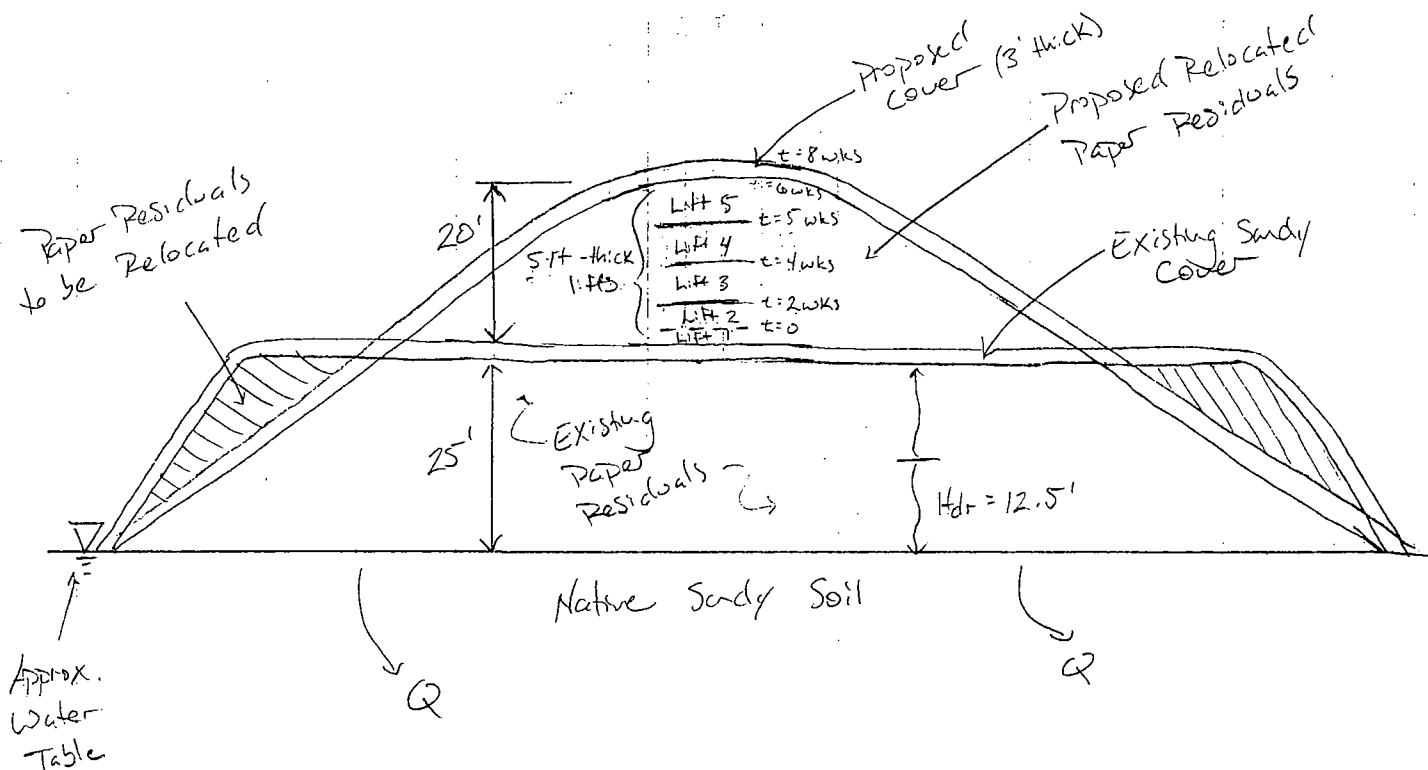 Proposed
Cover (3' thick)
Proposed Relocated
Paper Residuals
Paper Residuals
to be Relocated
t=8wks
t=6wks
Lift 5
t=5wks
20'
5-ft-thick
lifts
Lift 4
t=4wks
Lift 3
t=2wks
Lift 2
t=0
Lift 1
Existing Sandy
Cover
25'
Existing
Paper
Residuals
Hdr = 12.5'
Native Sandy Soil
Q
Q
Approx.
Water
Table